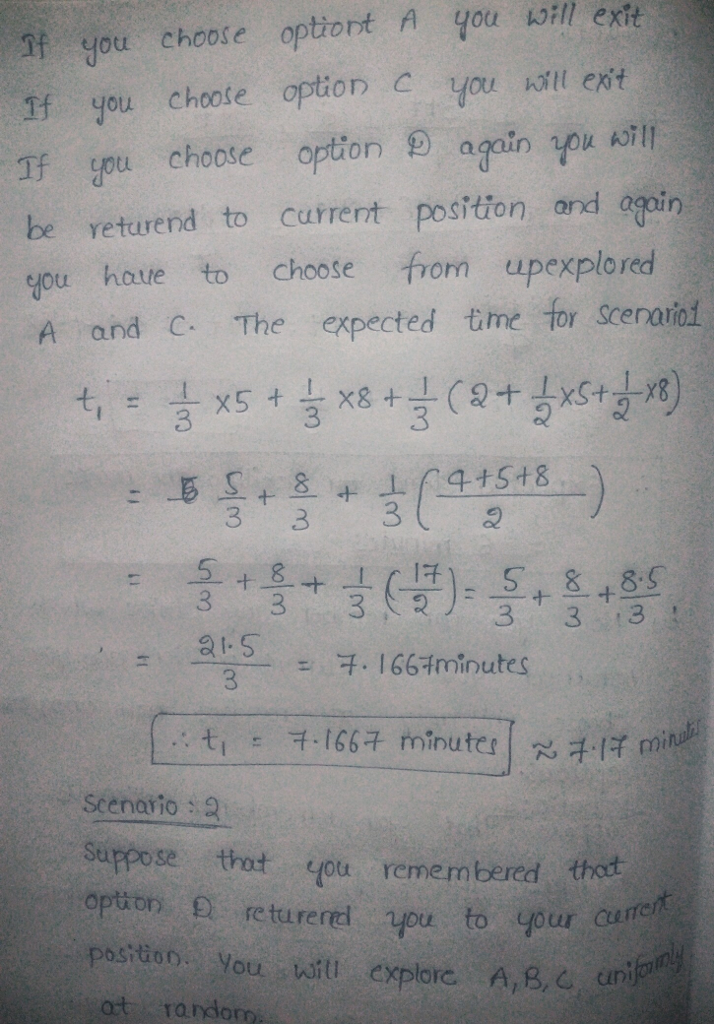 If you choose optiont A you will exit
If you choose option C you will exit
If you choose option D again you will
be returend to current position and again
you have to choose from upexplored
A and C. The expected time for scenario1
t₁ = 1/3 x5 + 1/3 x8 + 1/3 (2 + 1/2 x5 + 1/2 x8)
= 5/3 + 8/3 + 1/3 ((4+5+8)/2)
= 5/3 + 8/3 + 1/3 (17/2) = 5/3 + 8/3 + 8.5/3
= 21.5/3 = 7.1667minutes
∴ t₁ = 7.1667 minutes ≈ 7.17 minutes
Scenario : 2
Suppose that you remembered that
option D returened you to your current
position. You will explore A, B, C uniformly
at random.